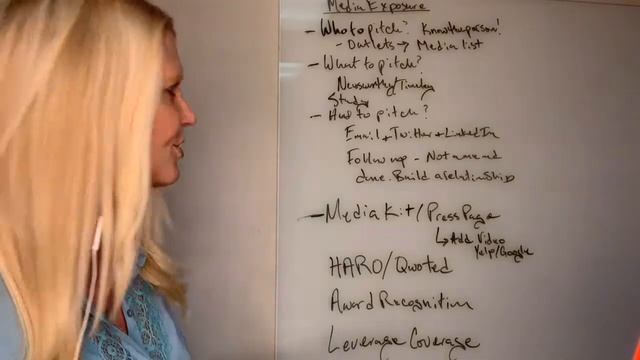 Media Exposure
- Who to pitch? Know the person!
- Outlets → Media list
- What to pitch?
Newsworthy/Timely
Study
- How to pitch?
Email + Twitter + LinkedIn
Follow up - Not one and
done. Build a relationship
- Media Kit/Press Page
↳ Add Video
Yelp/Google
HARO/Quoted
Award Recognition
Leverage Coverage